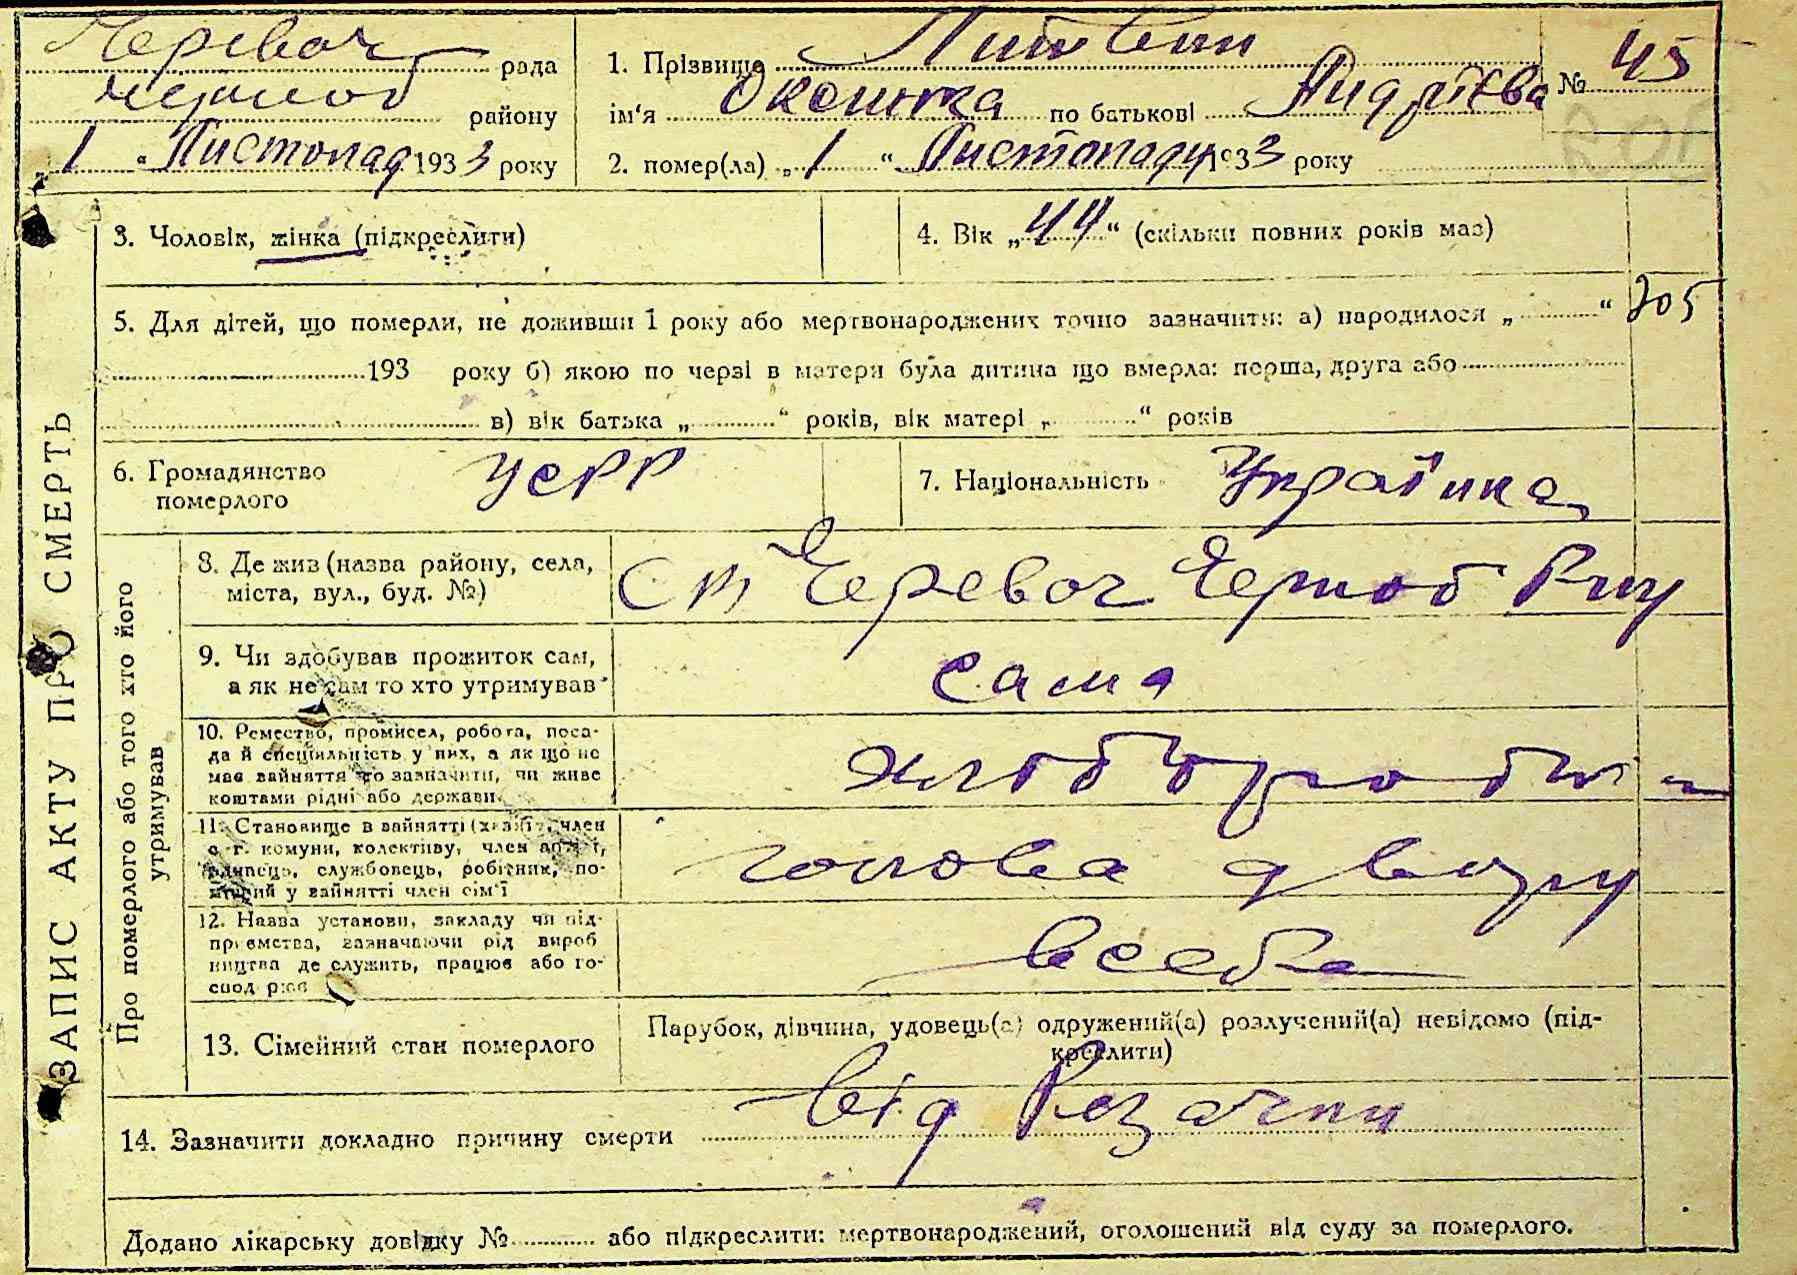 Черевач рада
Чорноб району
„ 1 “ Листопад 1933 року
1. Прізвище Литвин № 45
ім'я по батькові Андріева
2. помер(ла) „ 1 “ Листопаду 1933 року
ЗАПИС АКТУ ПРО СМЕРТЬ
3. Чоловік, жінка (підкреслити)
4. Вік „ 44 “ (скільки повних років має)
5. Для дітей, що померли, не доживши 1 року або мертвонароджених точно зазначити: а) народилося „ “ 205
193 року б) якою по черзі в матери була дитина що вмерла: перша, друга або
в) вік батька „ “ років, вік матері „ “ років
6. Громадянство УСРР
померлого
7. Національність Українка
Про померлого або того хто його
утримував
8. Де жив (назва району, села,
міста, вул., буд. №)
Черевач Чорноб Рну
9. Чи здобував прожиток сам,
а як не сам то хто утримував
сама
10. Ремество, промисел, робота, поса-
да й спеціяльність у них, а як що не
має вайняття то зазначити, чи живе
коштами рідні або держави.
11. Становище в вайнятті (хазяїн, член
с.-г. комуни, колективу, член артілі,
одинець, службовець, робітник, по-
мічний у вайнятті член сім'ї
голова двору
12. Назва установи, закладу чи під-
приємства, зазначаючи рід вироб
ництва де служить, працює або го-
спод рює
в себе
13. Сімейний стан померлого
Парубок, дівчина, удовець(а) одружений(а) розлучений(а) невідомо (під-
креслити)
14. Зазначити докладно причину смерти від Резачки
Додано лікарську довідку № або підкреслити: мертвонароджений, оголошений від суду за померлого.